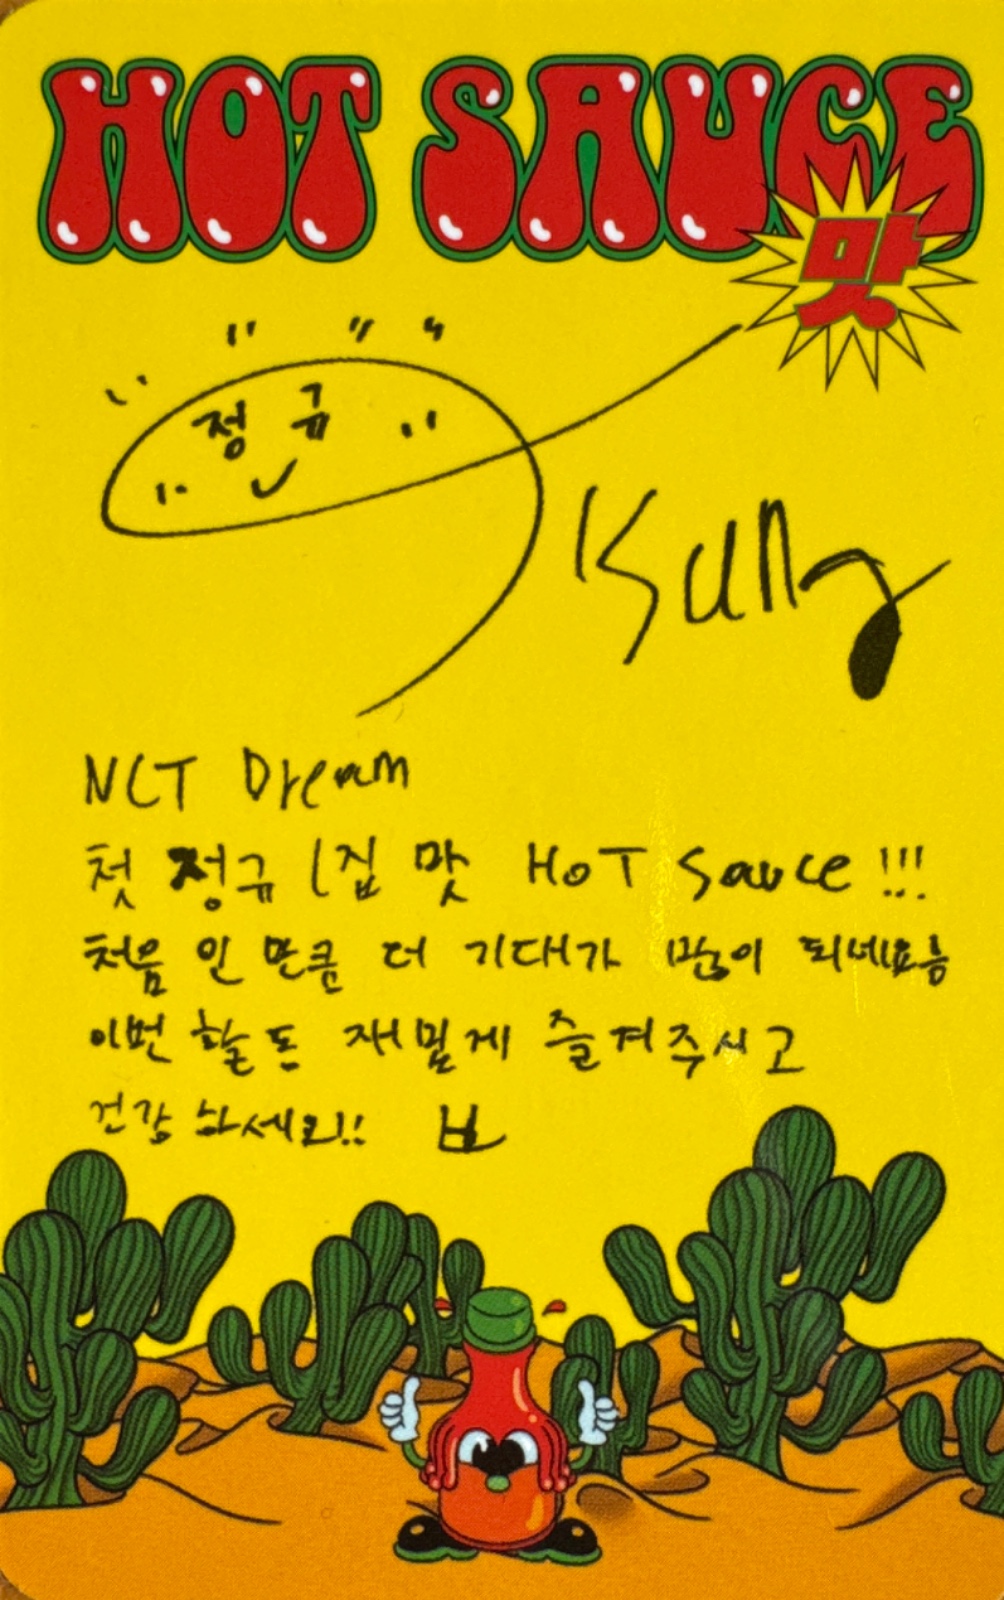 HOT SAUCE
맛
정규
NCT Dream
첫 정규 1집 맛 HoT Sauce !!!
처음 인 만큼 더 기대가 많이 되네요
이번 활동 재밌게 즐겨주시고
건강 하세요!!